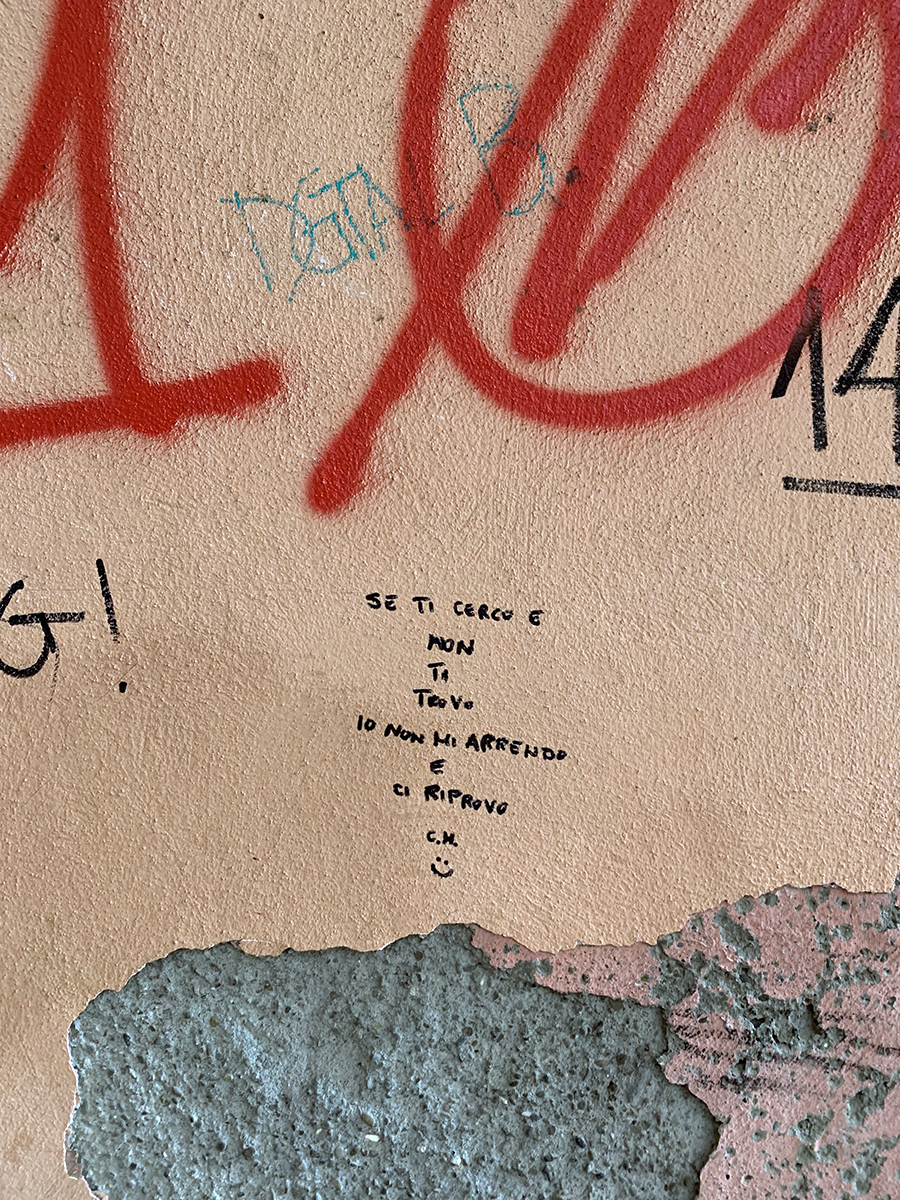 14
G!
SE TI CERCO E
NON
TI
TROVO
IO NON MI ARRENDO
E
CI RIPROVO
C.M.